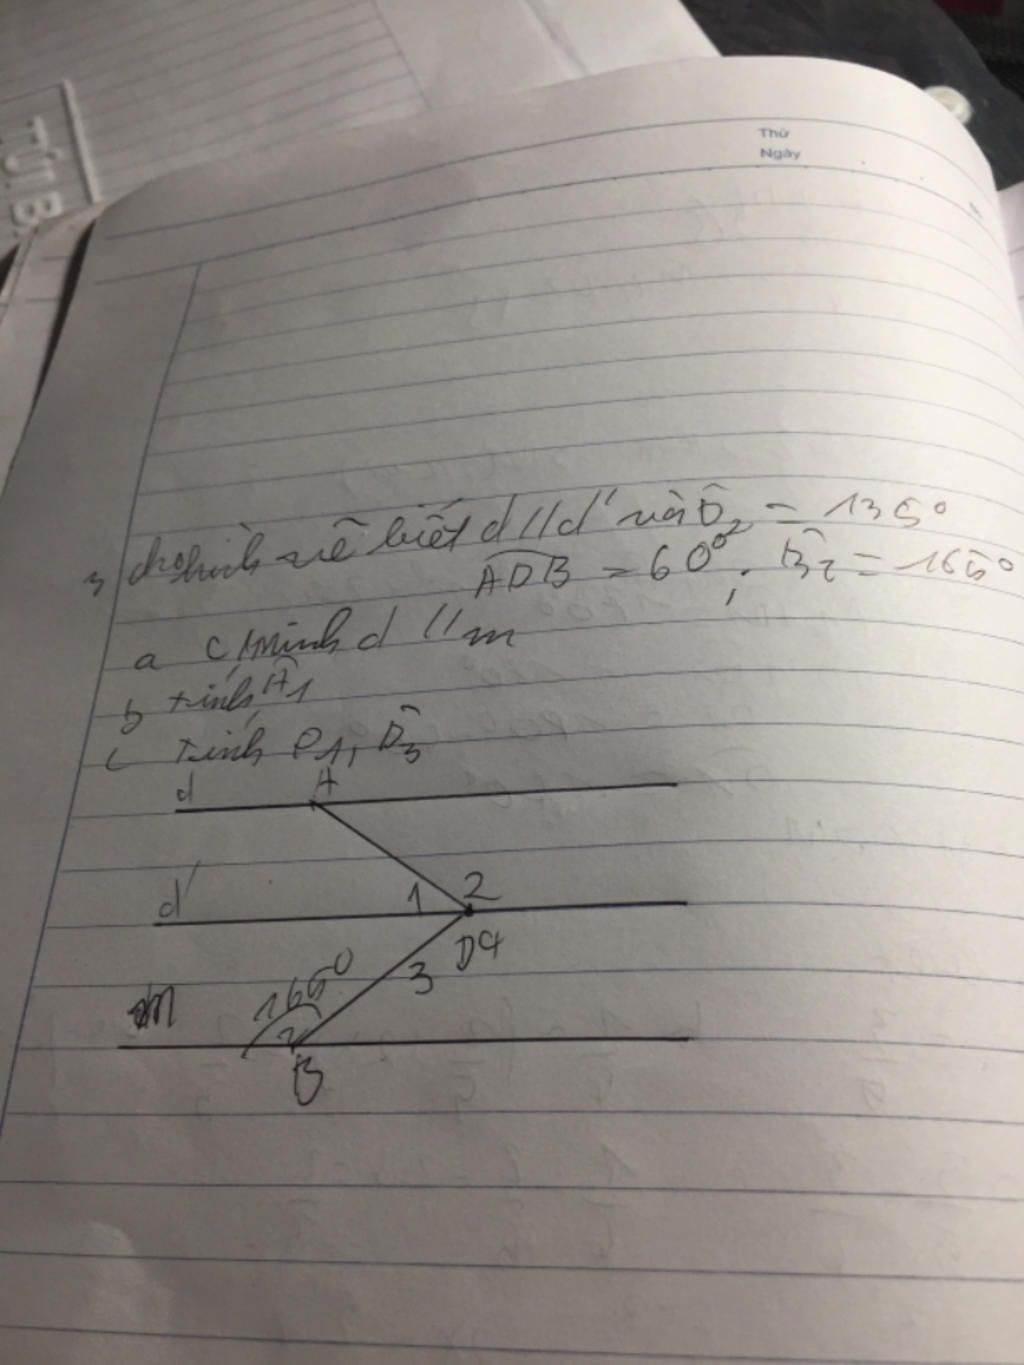 Thứ
Ngày
TÚI B
3, cho hình vẽ biết d // d' và D̂2 = 135°
ADB = 60°, B̂2 = 165°
a C/minh d // m
b tính Â1
c tính D1, D̂3
d
A
d'
1
2
D4
3
m
165°
2
B